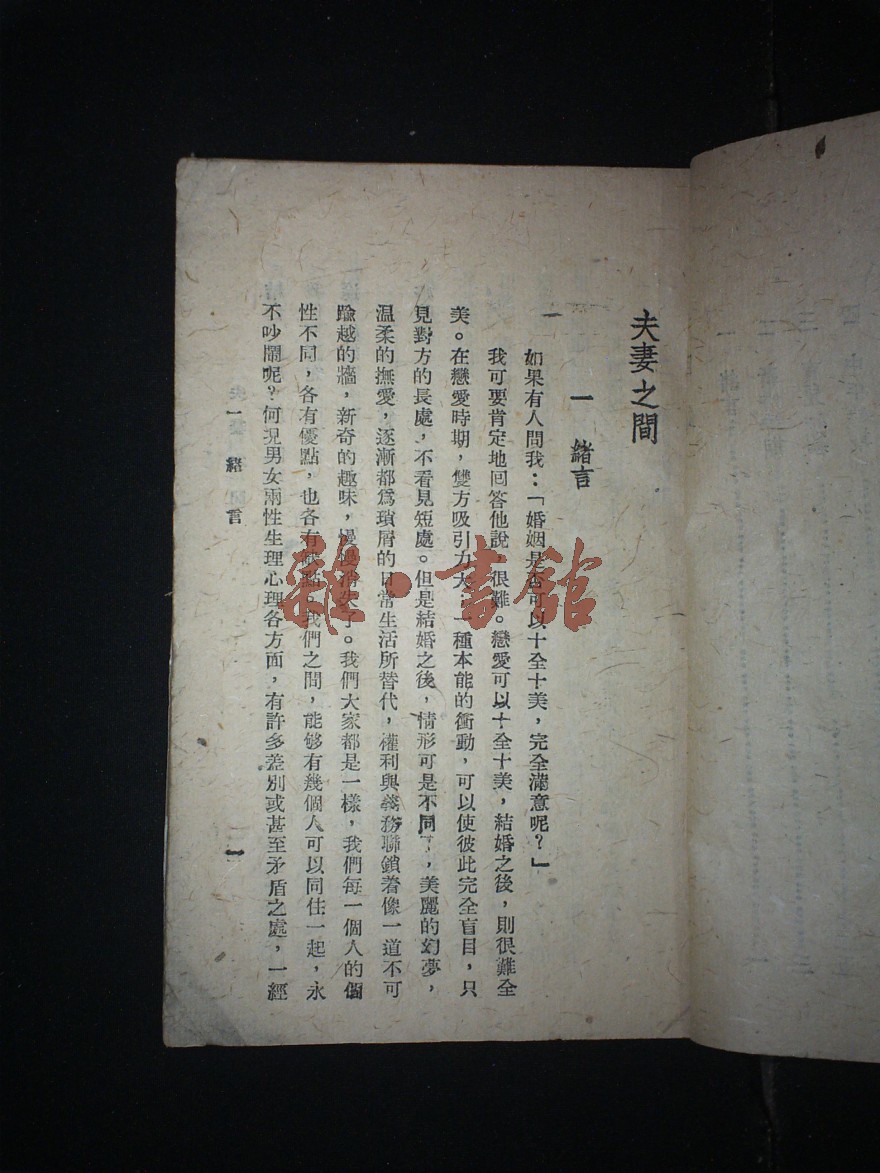 夫妻之間
一　緒言
一
如果有人問我：「婚姻是否可以十全十美，完全滿意呢？」
我可要肯定地回答他說：很難。戀愛可以十全十美，結婚之後，則很難全
美。在戀愛時期，雙方吸引力大，一種本能的衝動，可以使彼此完全盲目，只
見對方的長處，不看見短處。但是結婚之後，情形可是不同了，美麗的幻夢，
溫柔的撫愛，逐漸都爲瑣屑的日常生活所替代，權利與義務聯鎖着像一道不可
踰越的牆，新奇的趣味，慢慢消失了。我們大家都是一樣，我們每一個人的個
性不同，各有優點，也各有缺點。我們之間，能够有幾個人可以同住一起，永
不吵鬧呢？何況男女兩性生理心理各方面，有許多差別或甚至矛盾之處，一經
一　緒　言
一
雜·書館